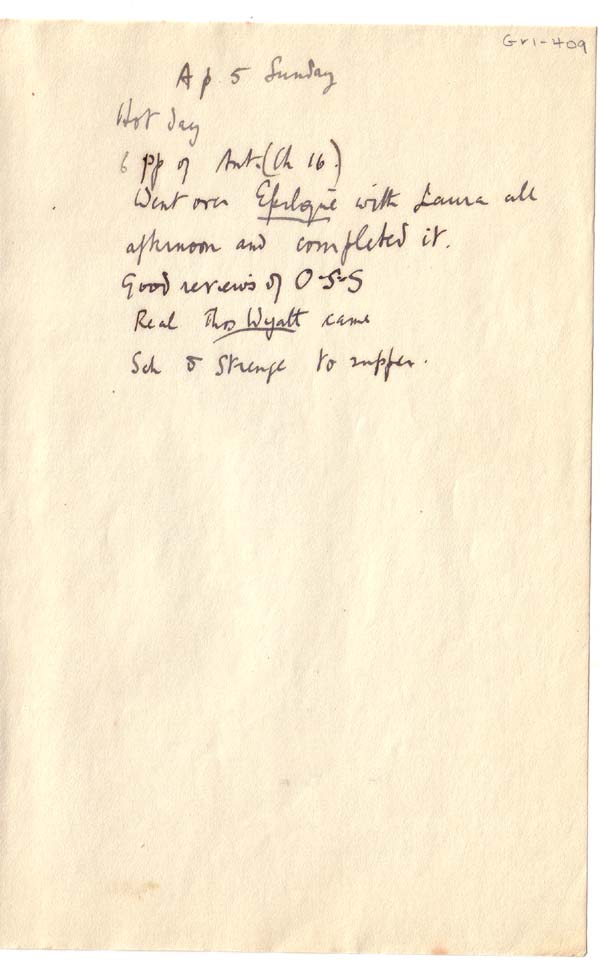 Gr1-409
Ap 5 Sunday
Hot day
6 pp of Ant. (Ch 16)
Went over Epilogue with Laura all
afternoon and completed it.
Good reviews of O-S-S
Real Thos Wyatt came
Sch & Strenge to supper.